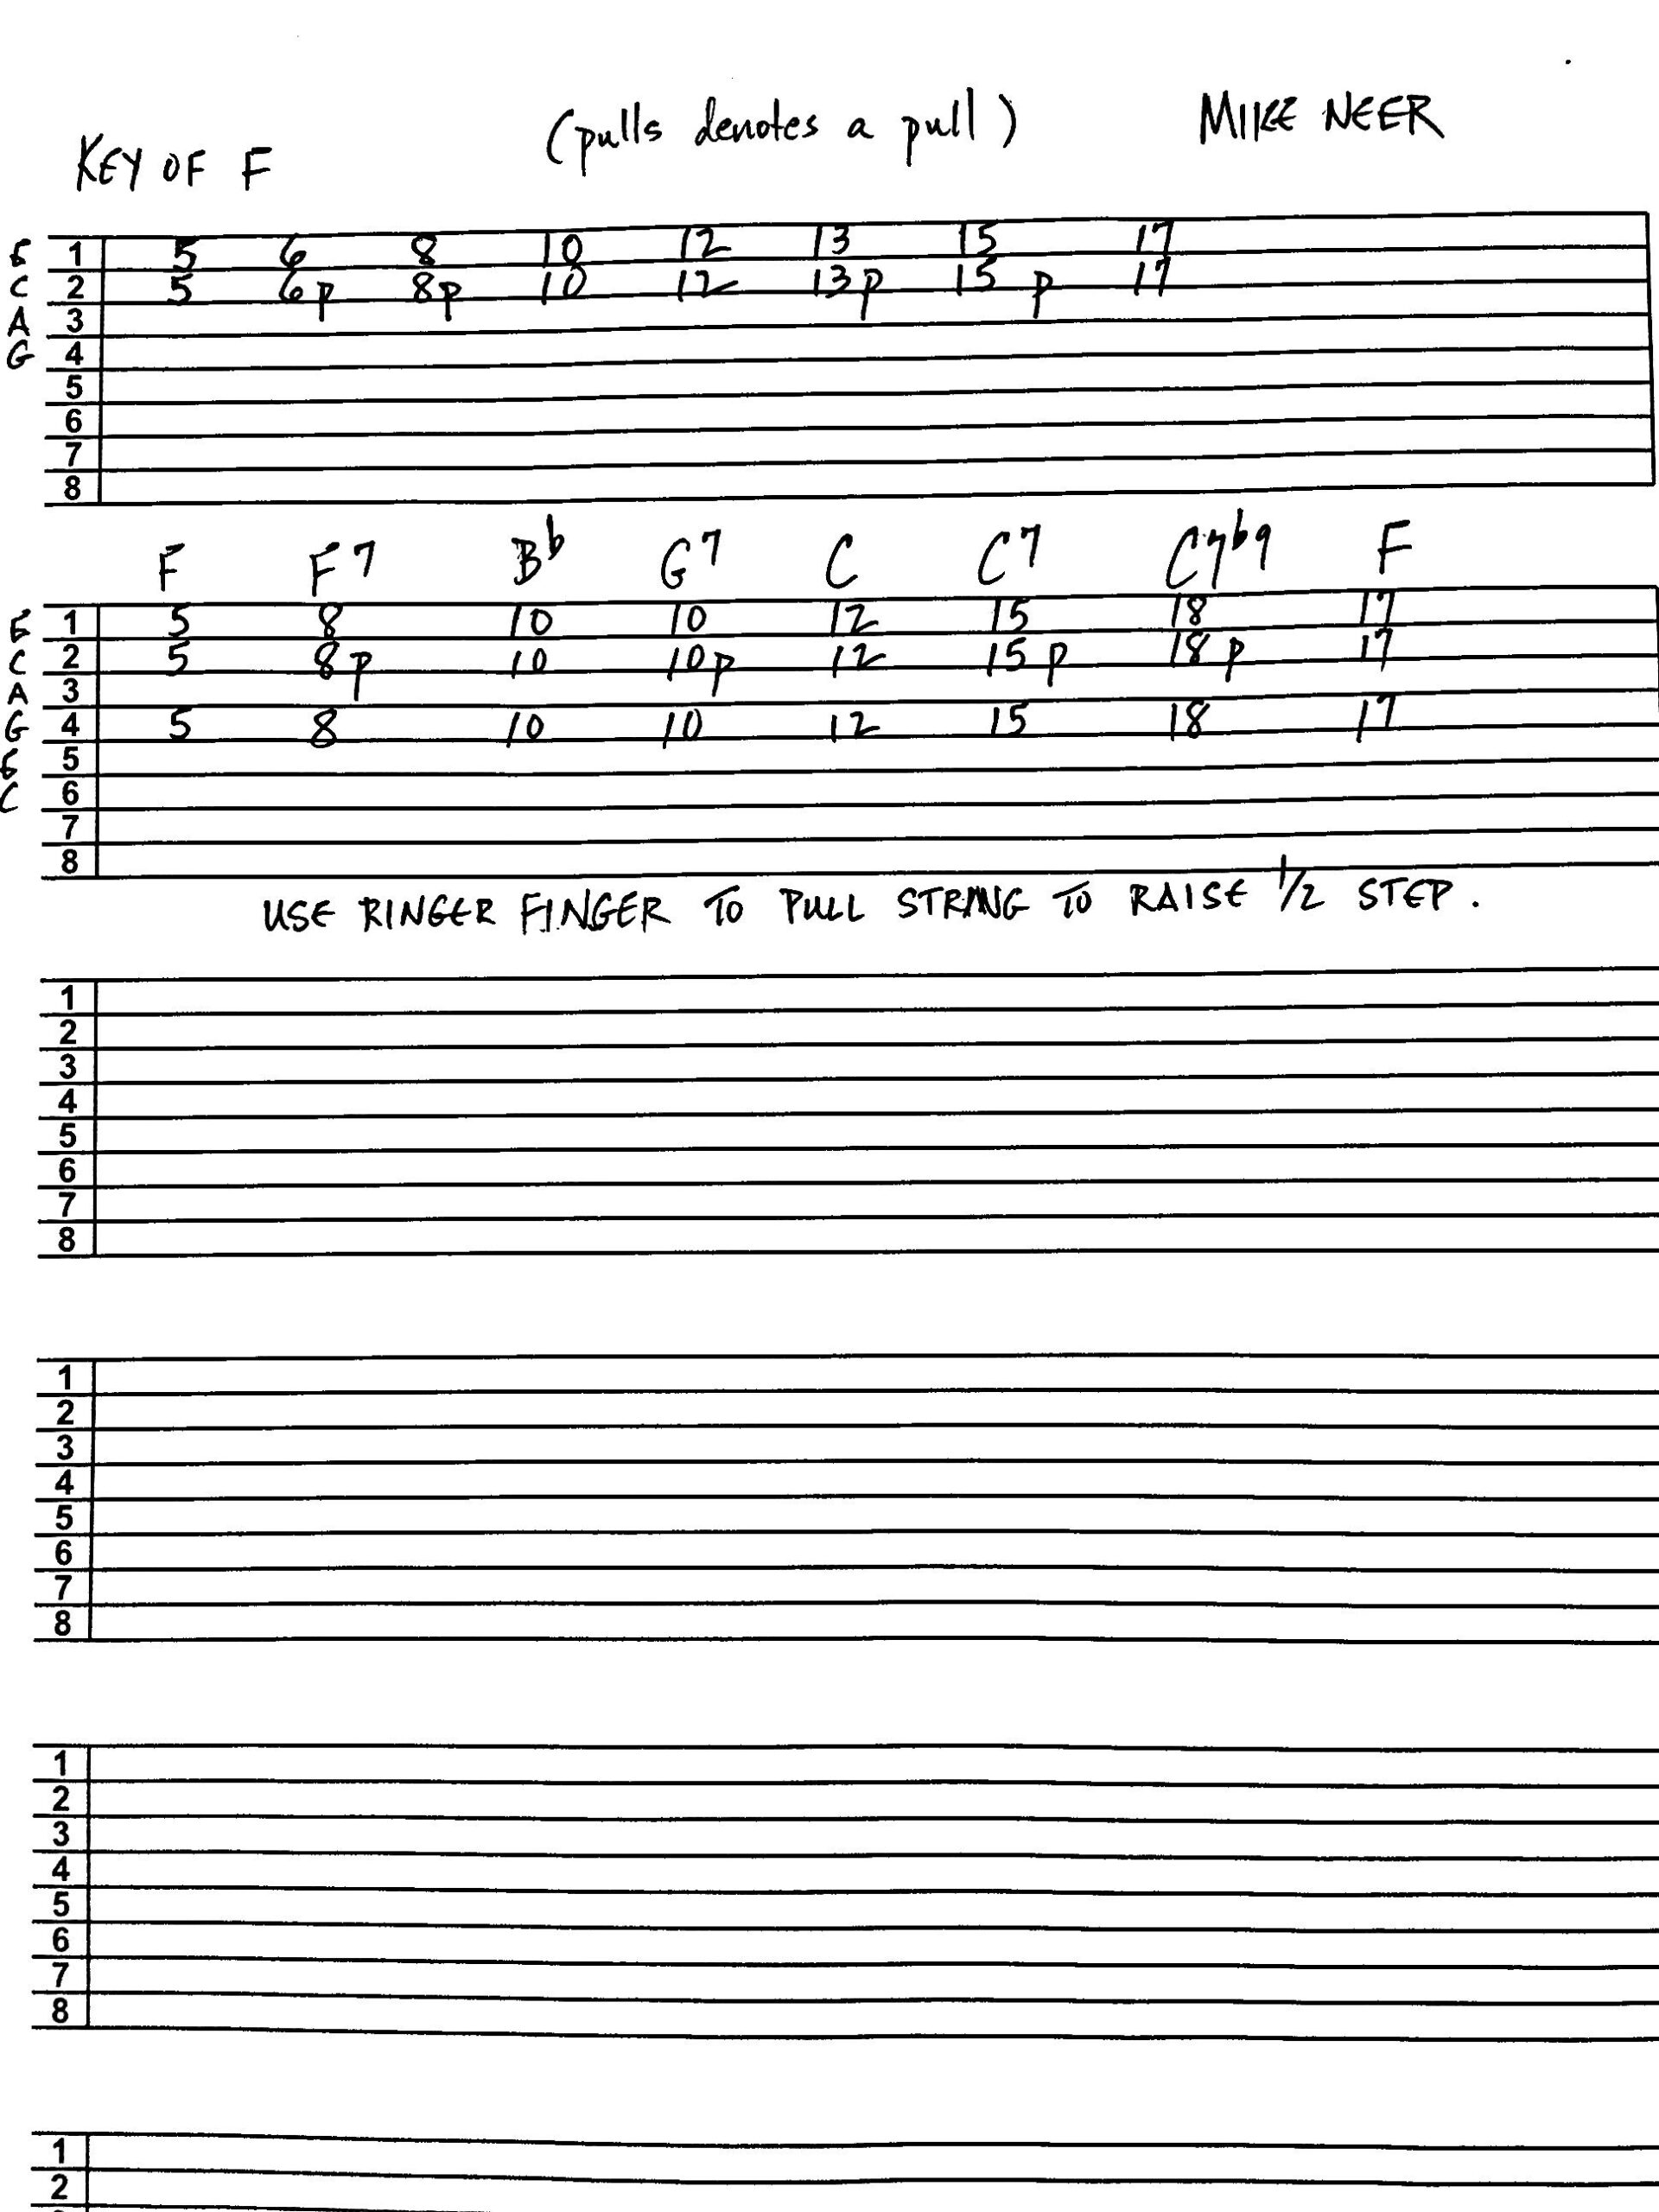 (pulls denotes a pull) MIKE NEER
KEY OF F
E 1 5 6 8 10 12 13 15 17
C 2 5 6p 8p 10 12 13p 15 p 17
A 3
G 4
5
6
7
8
F F7 Bb G7 C C7 C7b9 F
E 1 5 8 10 10 12 15 18 17
C 2 5 8p 10 10p 12 15p 18p 17
A 3
G 4 5 8 10 10 12 15 18 17
E 5
C 6
7
8
USE RINGER FINGER TO PULL STRING TO RAISE 1/2 STEP.
1
2
3
4
5
6
7
8
1
2
3
4
5
6
7
8
1
2
3
4
5
6
7
8
1
2